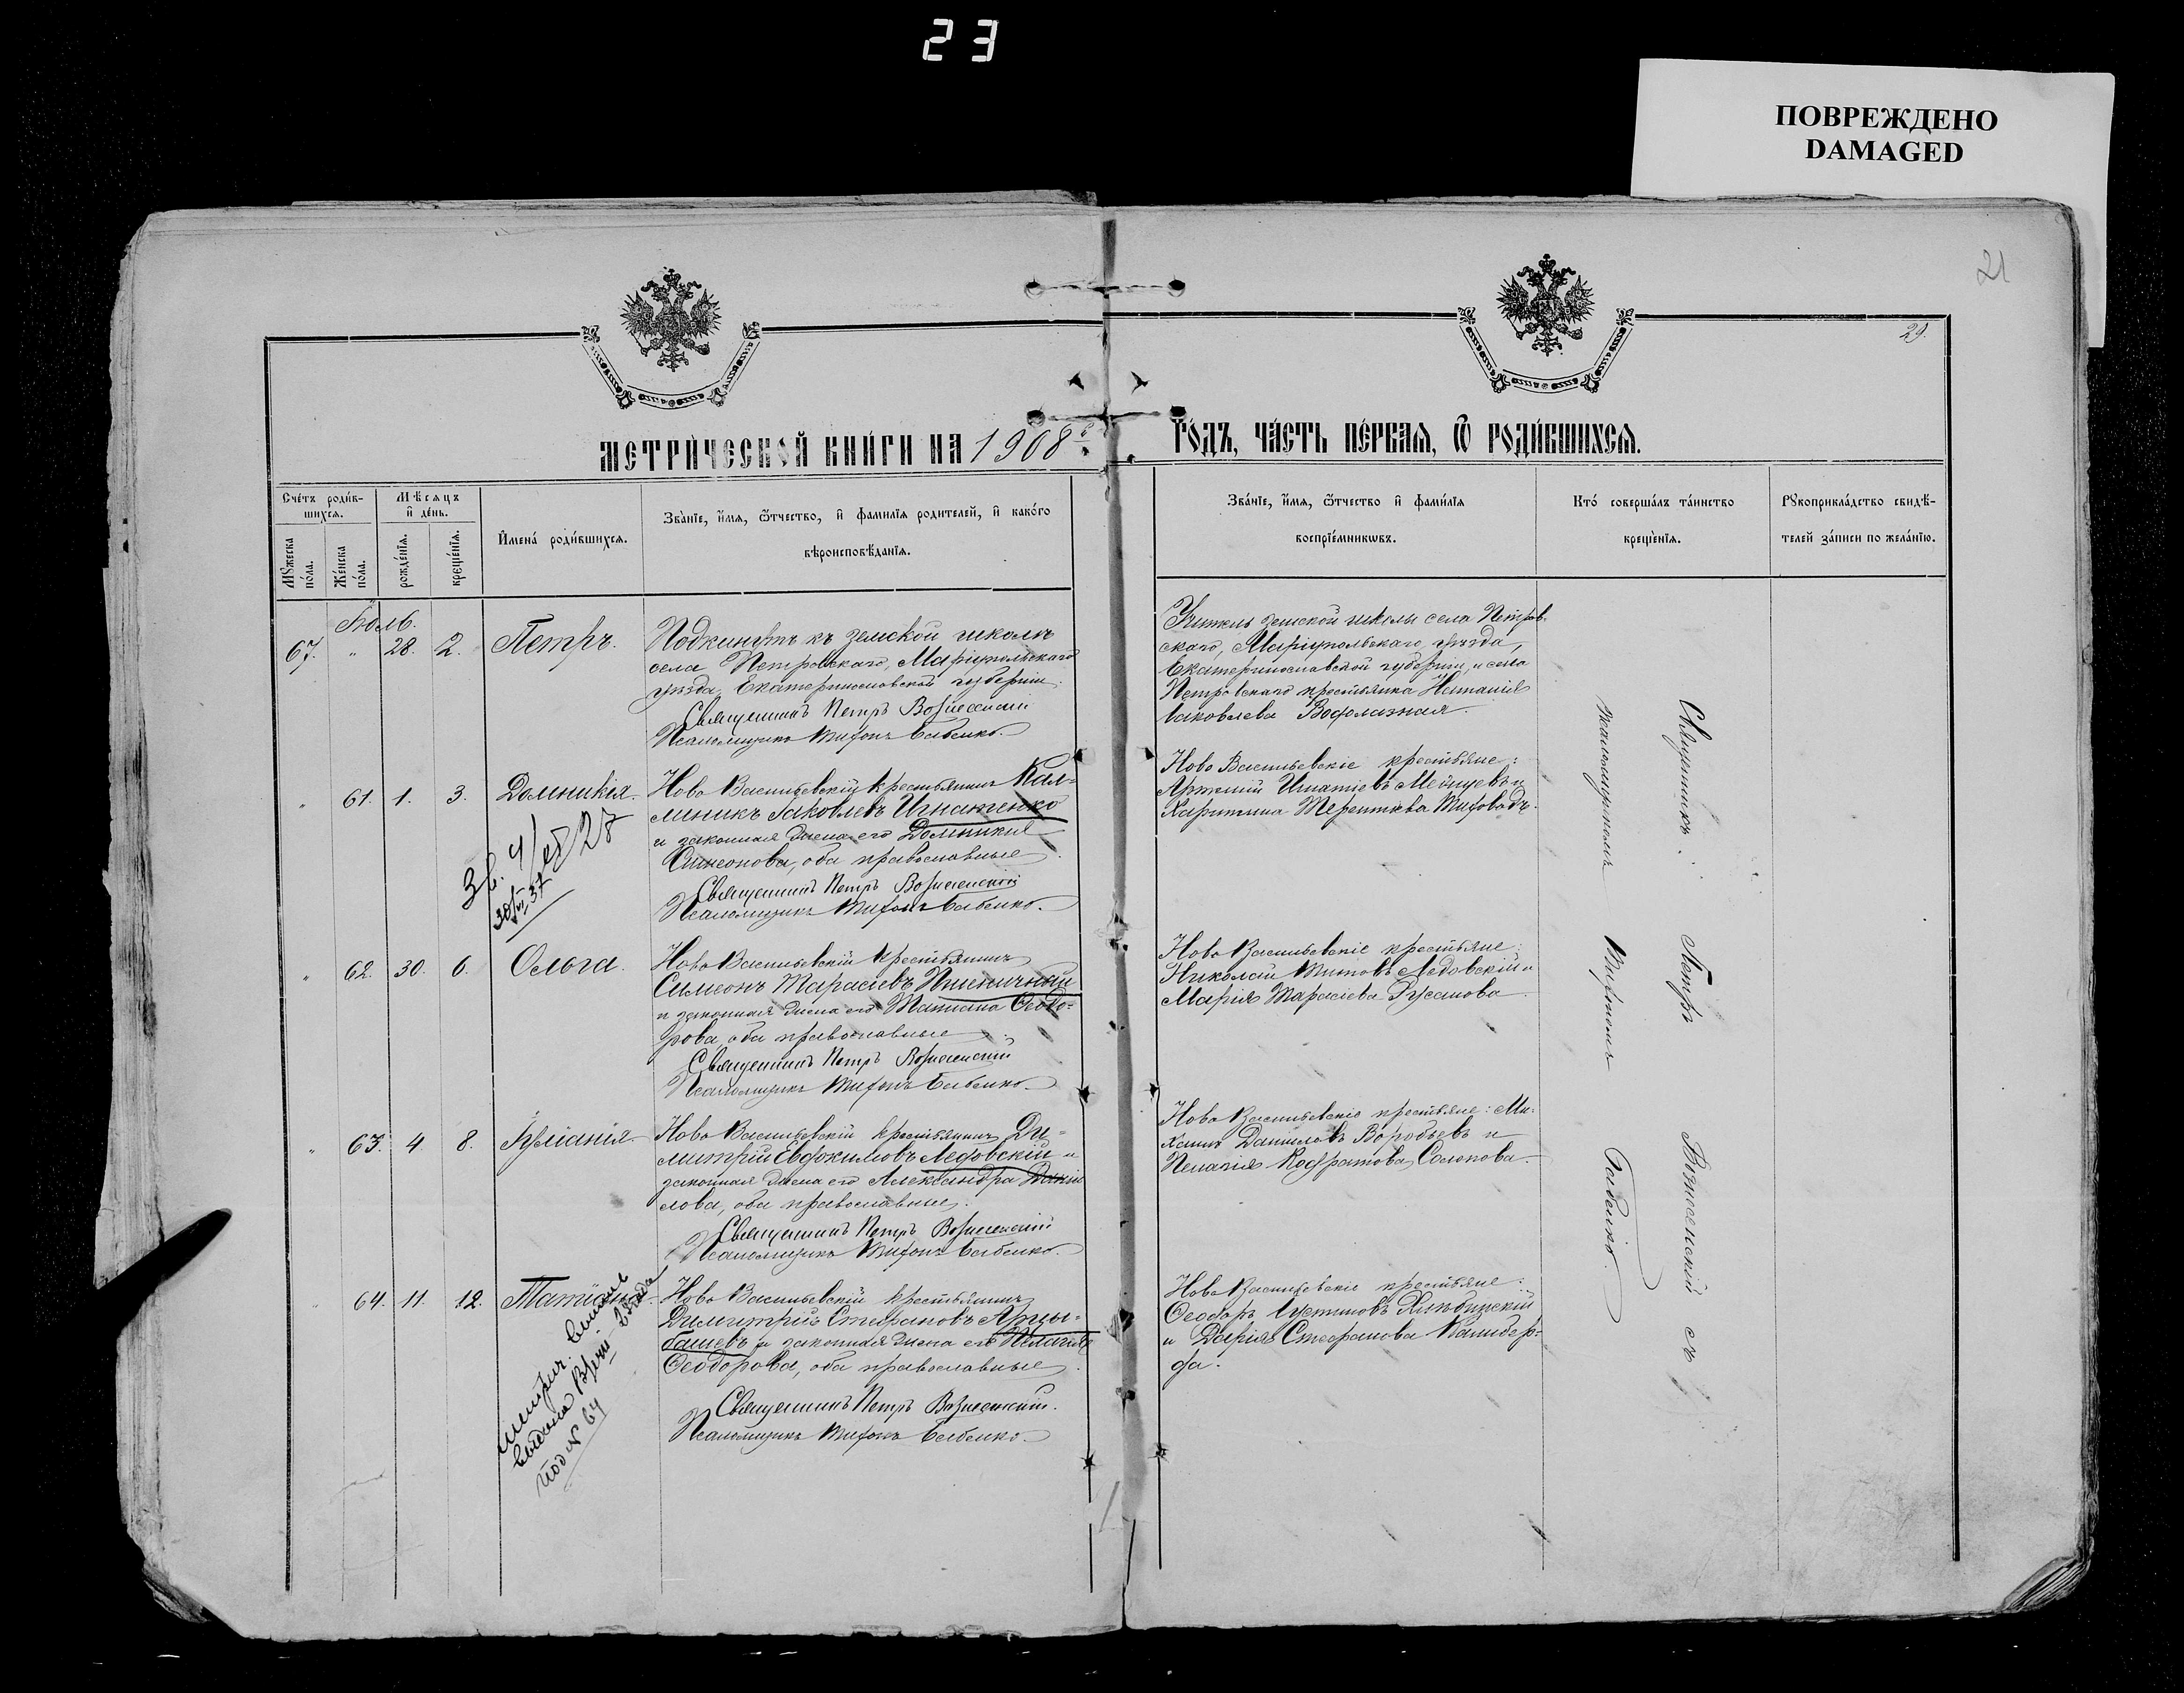 23
ПОВРЕЖДЕНО
DAMAGED
21
29.
МЕТРИЧЕСКОЙ КНИГИ НА 1908й
ГОДЪ, ЧАСТЬ ПЕРВАЯ, Ѿ РОДИВШИХСЯ.
Счетъ родив-
шихся.
Мужеска
пола.
Женска
пола.
Мѣсяцъ
и день.
рожденія.
крещенія.
Имена родившихся.
Званіе, имя, ѿтчество, и фамилія родителей, и какого
вѣроисповѣданія.
Званіе, имя, ѿтчество и фамилія
воспріемниковъ.
Кто совершалъ таинство
крещенія.
Рукоприкладство свидѣ-
телей записи по желанію.
Іюль.
67. " 28. 2. Петръ.
Подкинутъ къ земской школѣ
села Петровскаго, Маріупольскаго
уѣзда, Екатеринославской губерніи.
Священникъ Петръ Вознесенскій
Псаломщикъ Тифонъ Бабенко.
Учитель земской школы села Петров-
скаго, Маріупольскаго уѣзда,
Екатеринославской губерніи, и села
Петровскаго крестьянка Наталія
Іаковлева Водолазная.
" 61. 1. 3. Домникія.
Ново Васильевскій крестьянинъ Кал-
линикъ Іаковлевъ Игнатенко
и законная жена его Домникія
Симеонова, оба православные.
Священникъ Петръ Вознесенскій
Псаломщикъ Тифонъ Бабенко.
Ново Васильевскіе крестьяне:
Артемій Игнатіевъ и
Харитина Терентіева
" 62. 30. 6. Ольга.
Ново Васильевскій крестьянинъ
Симеонъ Тарасіевъ Пшеничный
и законная жена его Татіана Ѳеодо-
рова, оба православные.
Священникъ Петръ Вознесенскій
Псаломщикъ Тифонъ Бабенко.
Ново Васильевскіе крестьяне:
Николай Титовъ Ледовскій и
Марія Тарасіева Русанова.
" 63. 4. 8. Іуліанія.
Ново Васильевскій крестьянинъ Ди-
митрій Евдокимовъ Ледовскій и
законная жена его Александра Дани-
лова, оба православные.
Священникъ Петръ Вознесенскій
Псаломщикъ Тифонъ Бабенко.
Ново Васильевскіе крестьяне: Ми-
хаилъ Даниловъ Воробьевъ и
Пелагія Кодратова Солонова.
" 64. 11. 12. Татіана.
Ново Васильевскій крестьянинъ
Димитрій Стефановъ Арцы-
башевъ и законная жена его Пелагія
Ѳеодорова, оба православные.
Священникъ Петръ Вознесенскій.
Псаломщикъ Тифонъ Бабенко.
Ново Васильевскіе крестьяне:
Ѳеодоръ Іустиновъ
и Дарія Стефанова
да.
метрич. выпись
выдана
под № 64
Священникъ Петръ Вознесенскій съ
псаломщикомъ Бабенко.